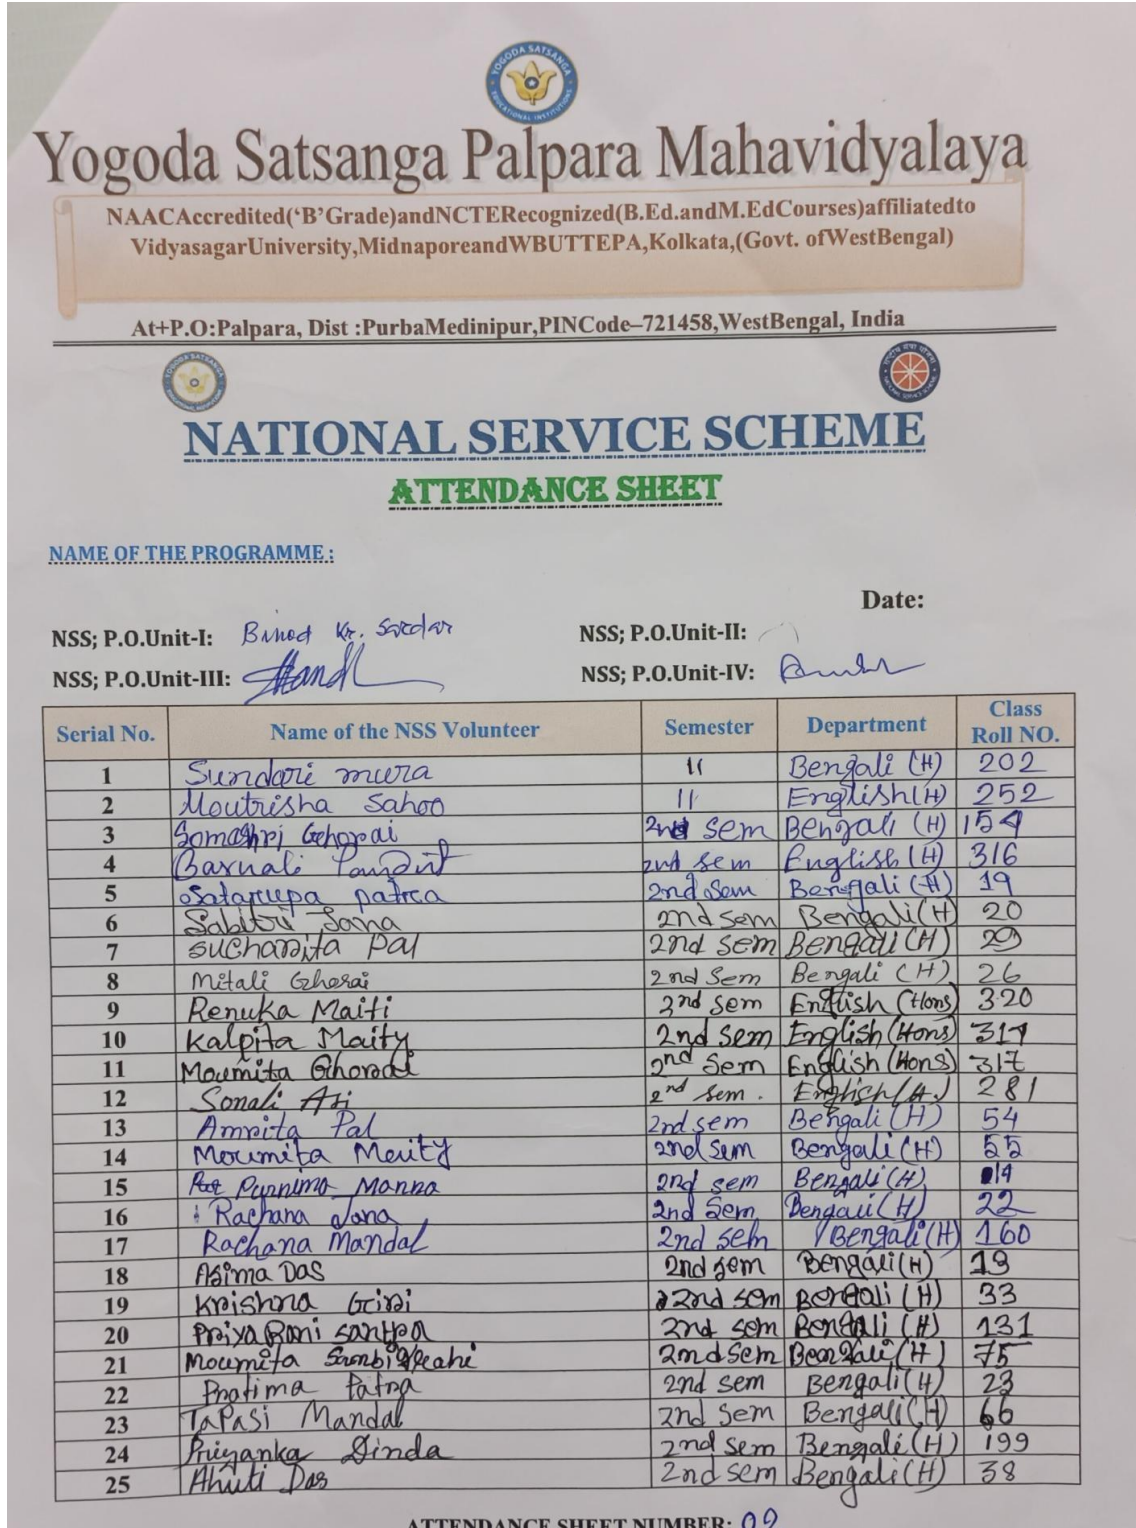 YOGODA SATSANGA
EDUCATIONAL INSTITUTIONS
Yogoda Satsanga Palpara Mahavidyalaya
NAACAccredited('B'Grade)andNCTERecognized(B.Ed.andM.EdCourses)affiliatedto
VidyasagarUniversity,MidnaporeandWBUTTEPA,Kolkata,(Govt. ofWestBengal)
At+P.O:Palpara, Dist :PurbaMedinipur,PINCode–721458,WestBengal, India
NATIONAL SERVICE SCHEME
ATTENDANCE SHEET
NAME OF THE PROGRAMME :
Date:
NSS; P.O.Unit-I: Binod Kr. Sardar NSS; P.O.Unit-II:
NSS; P.O.Unit-III: NSS; P.O.Unit-IV:
Serial No. Name of the NSS Volunteer Semester Department Class Roll NO.
1 Sundari mura II Bengali (H) 202
2 Moutrisha Sahoo II English(H) 252
3 Somashri Ghorai 2nd sem Bengali (H) 154
4 Barnali 2nd sem English (H) 316
5 Satarupa patra 2nd Sem Bengali (H) 19
6 Sabitri Jana 2nd sem Bengali(H) 20
7 sucharita pal 2nd sem Bengali (H) 29
8 Mitali Ghorai 2nd Sem Bengali (H) 26
9 Renuka Maiti 2nd sem English (Hons) 320
10 Kalpita Maity 2nd sem English (Hons)
11 Moumita Ghorai 2nd Sem English (Hons) 317
12 Sonali 2nd sem. English(H.) 281
13 Amrita Pal 2nd sem Bengali (H) 54
14 Moumita Meity 2nd sem Bengali (H) 55
15 Purnima Manna 2nd sem Bengali (H)
16 Rachana Jana 2nd Sem Bengali (H) 22
17 Rachana Mandal 2nd sem Bengali(H) 160
18 Asima Das 2nd sem Bengali(H)
19 Krishna Giri 2nd sem Bengali (H) 33
20 Priya Rani santra 2nd sem Bengali (H) 131
21 Moumita 2nd sem Bengali (H) 75
22 Pratima Patra 2nd sem Bengali(H) 23
23 TaPasi Mandal 2nd sem Bengali(H) 66
24 Priyanka Dinda 2nd sem Bengali(H) 199
25 Ahuti Das 2nd sem Bengali(H) 38
ATTENDANCE SHEET NUMBER: 02